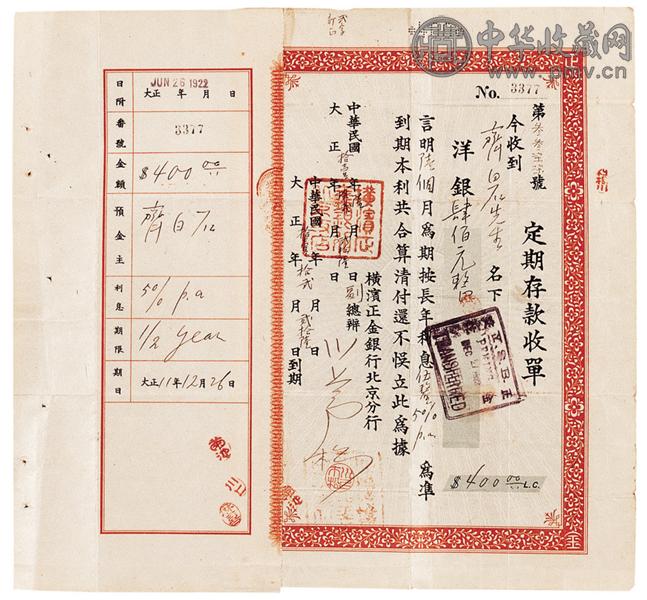 中华收藏网
www.pmv.cn
No. 3377
定期存款收單
第叁叁柒柒號
今收到
齊白石先生名下
洋銀肆佰元整
言明陸個月爲期按長年利息伍釐5% p.a爲準
到期本利共合算清付還不悞立此爲據
中華民國拾壹年陸月
大正
年
月
日
副總辦
橫濱正金銀行北京分行
中華民國
年拾貳月貳拾陸日到期
大正
年
月
$400 00 L.C.
TRANSFERRED
日附
JUN 26 1922
大正 年 月 日
番號
3377
金額
$400 00
預金主
齊白石
利息
5% p.a
期限
1/2 year
期日
大正11年12月26日